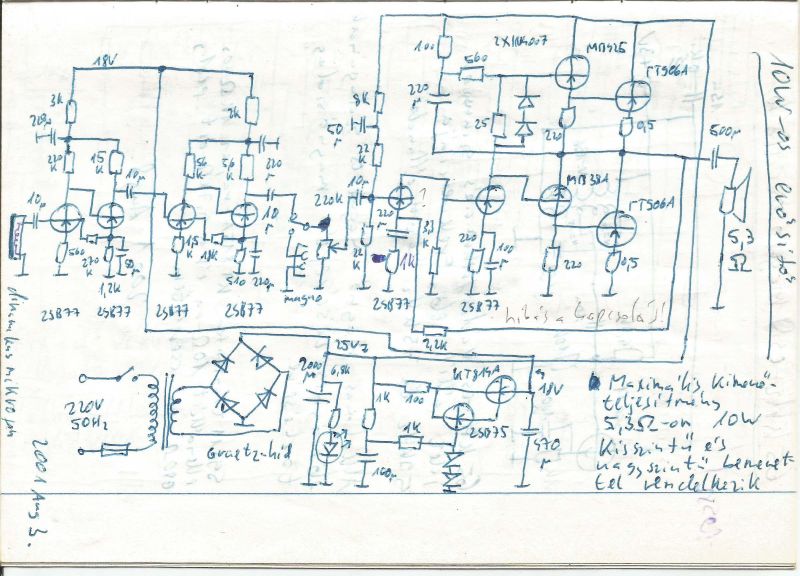 10W-os erősítő
18V
3k
220µ
220
K
15
K
10µ
10µ
560
270
K
1,2k
50µ
2SB77
2SB77
dinamikus mikroph
2k
56
K
5,6
K
220
µ
10
µ
1,5
K
18k
510
220µ
2SB77
2SB77
magno
220K
8k
50
µ
22
K
10µ
?
220
µ
22
K
1k
3,3
K
2SB77
2SB77
100
560
220
µ
25
2X1N4007
МП925
ГТ906А
220
0,5
МП38А
ГТ906А
220
100
µ
220
0,5
500µ
5,3
Ω
hibás a kapcsolás!
2,2k
220V
50Hz
Graetz-híd
25V
2000
µ
6,8k
1k
100
1k
100µ
КТ819А
2SB75
18V
470
µ
Maximális kimenő-
teljesítmény
5,3Ω-on 10W
Kisszintű és
nagyszintű bemenet-
tel rendelkezik
2001 Aug 3.